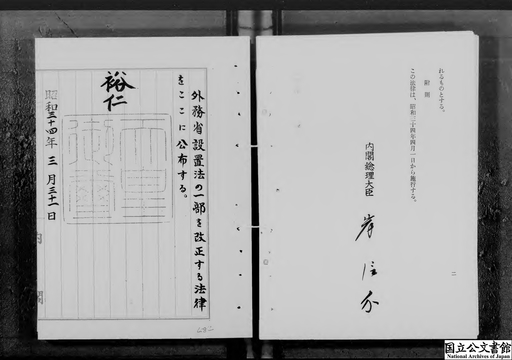 れるものとする。
附則
この法律は、昭和三十四年四月一日から施行する。
内閣総理大臣
岸信介
二
外務省設置法の一部を改正する法律
をここに公布する。
裕仁
天皇御璽
昭和三十四年三月三十一日
内
閣
国立公文書館
National Archives of Japan